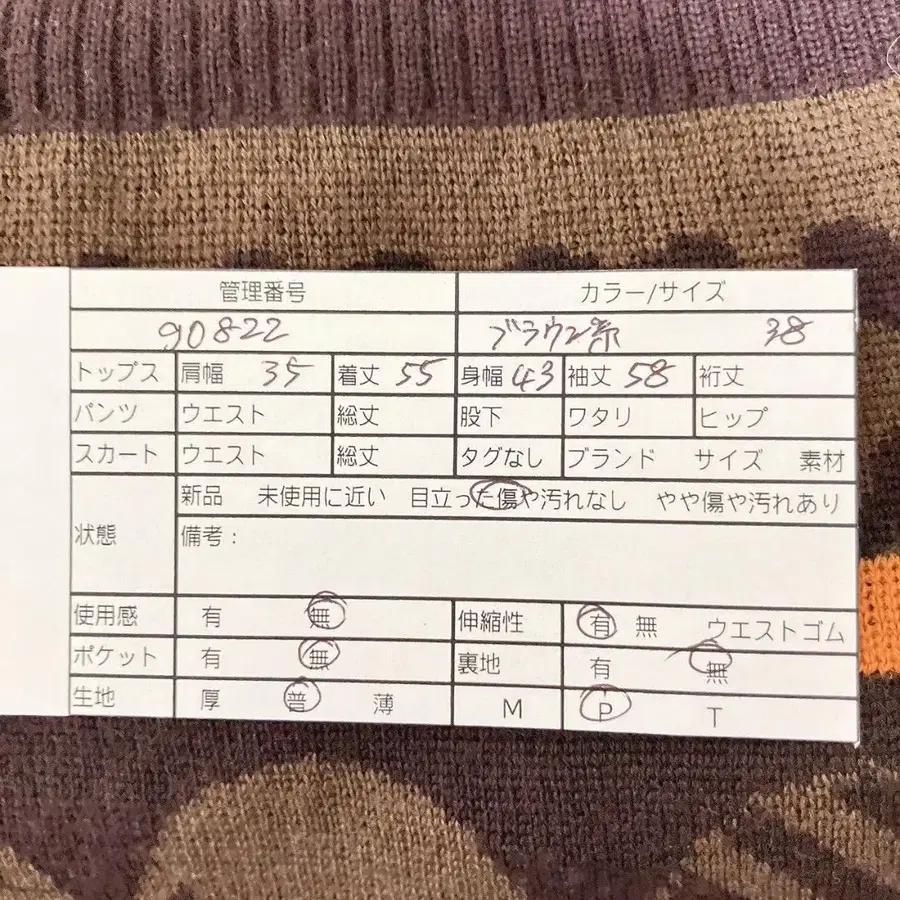 管理番号 カラー/サイズ
90822 ブラウン系 38
トップス 肩幅 35 着丈 55 身幅 43 袖丈 58 裄丈
パンツ ウエスト 総丈 股下 ワタリ ヒップ
スカート ウエスト 総丈 タグなし ブランド サイズ 素材
状態 新品 未使用に近い 目立った傷や汚れなし やや傷や汚れあり
備考:
使用感 有 無 伸縮性 有 無 ウエストゴム
ポケット 有 無 裏地 有 無
生地 厚 普 薄 M P T